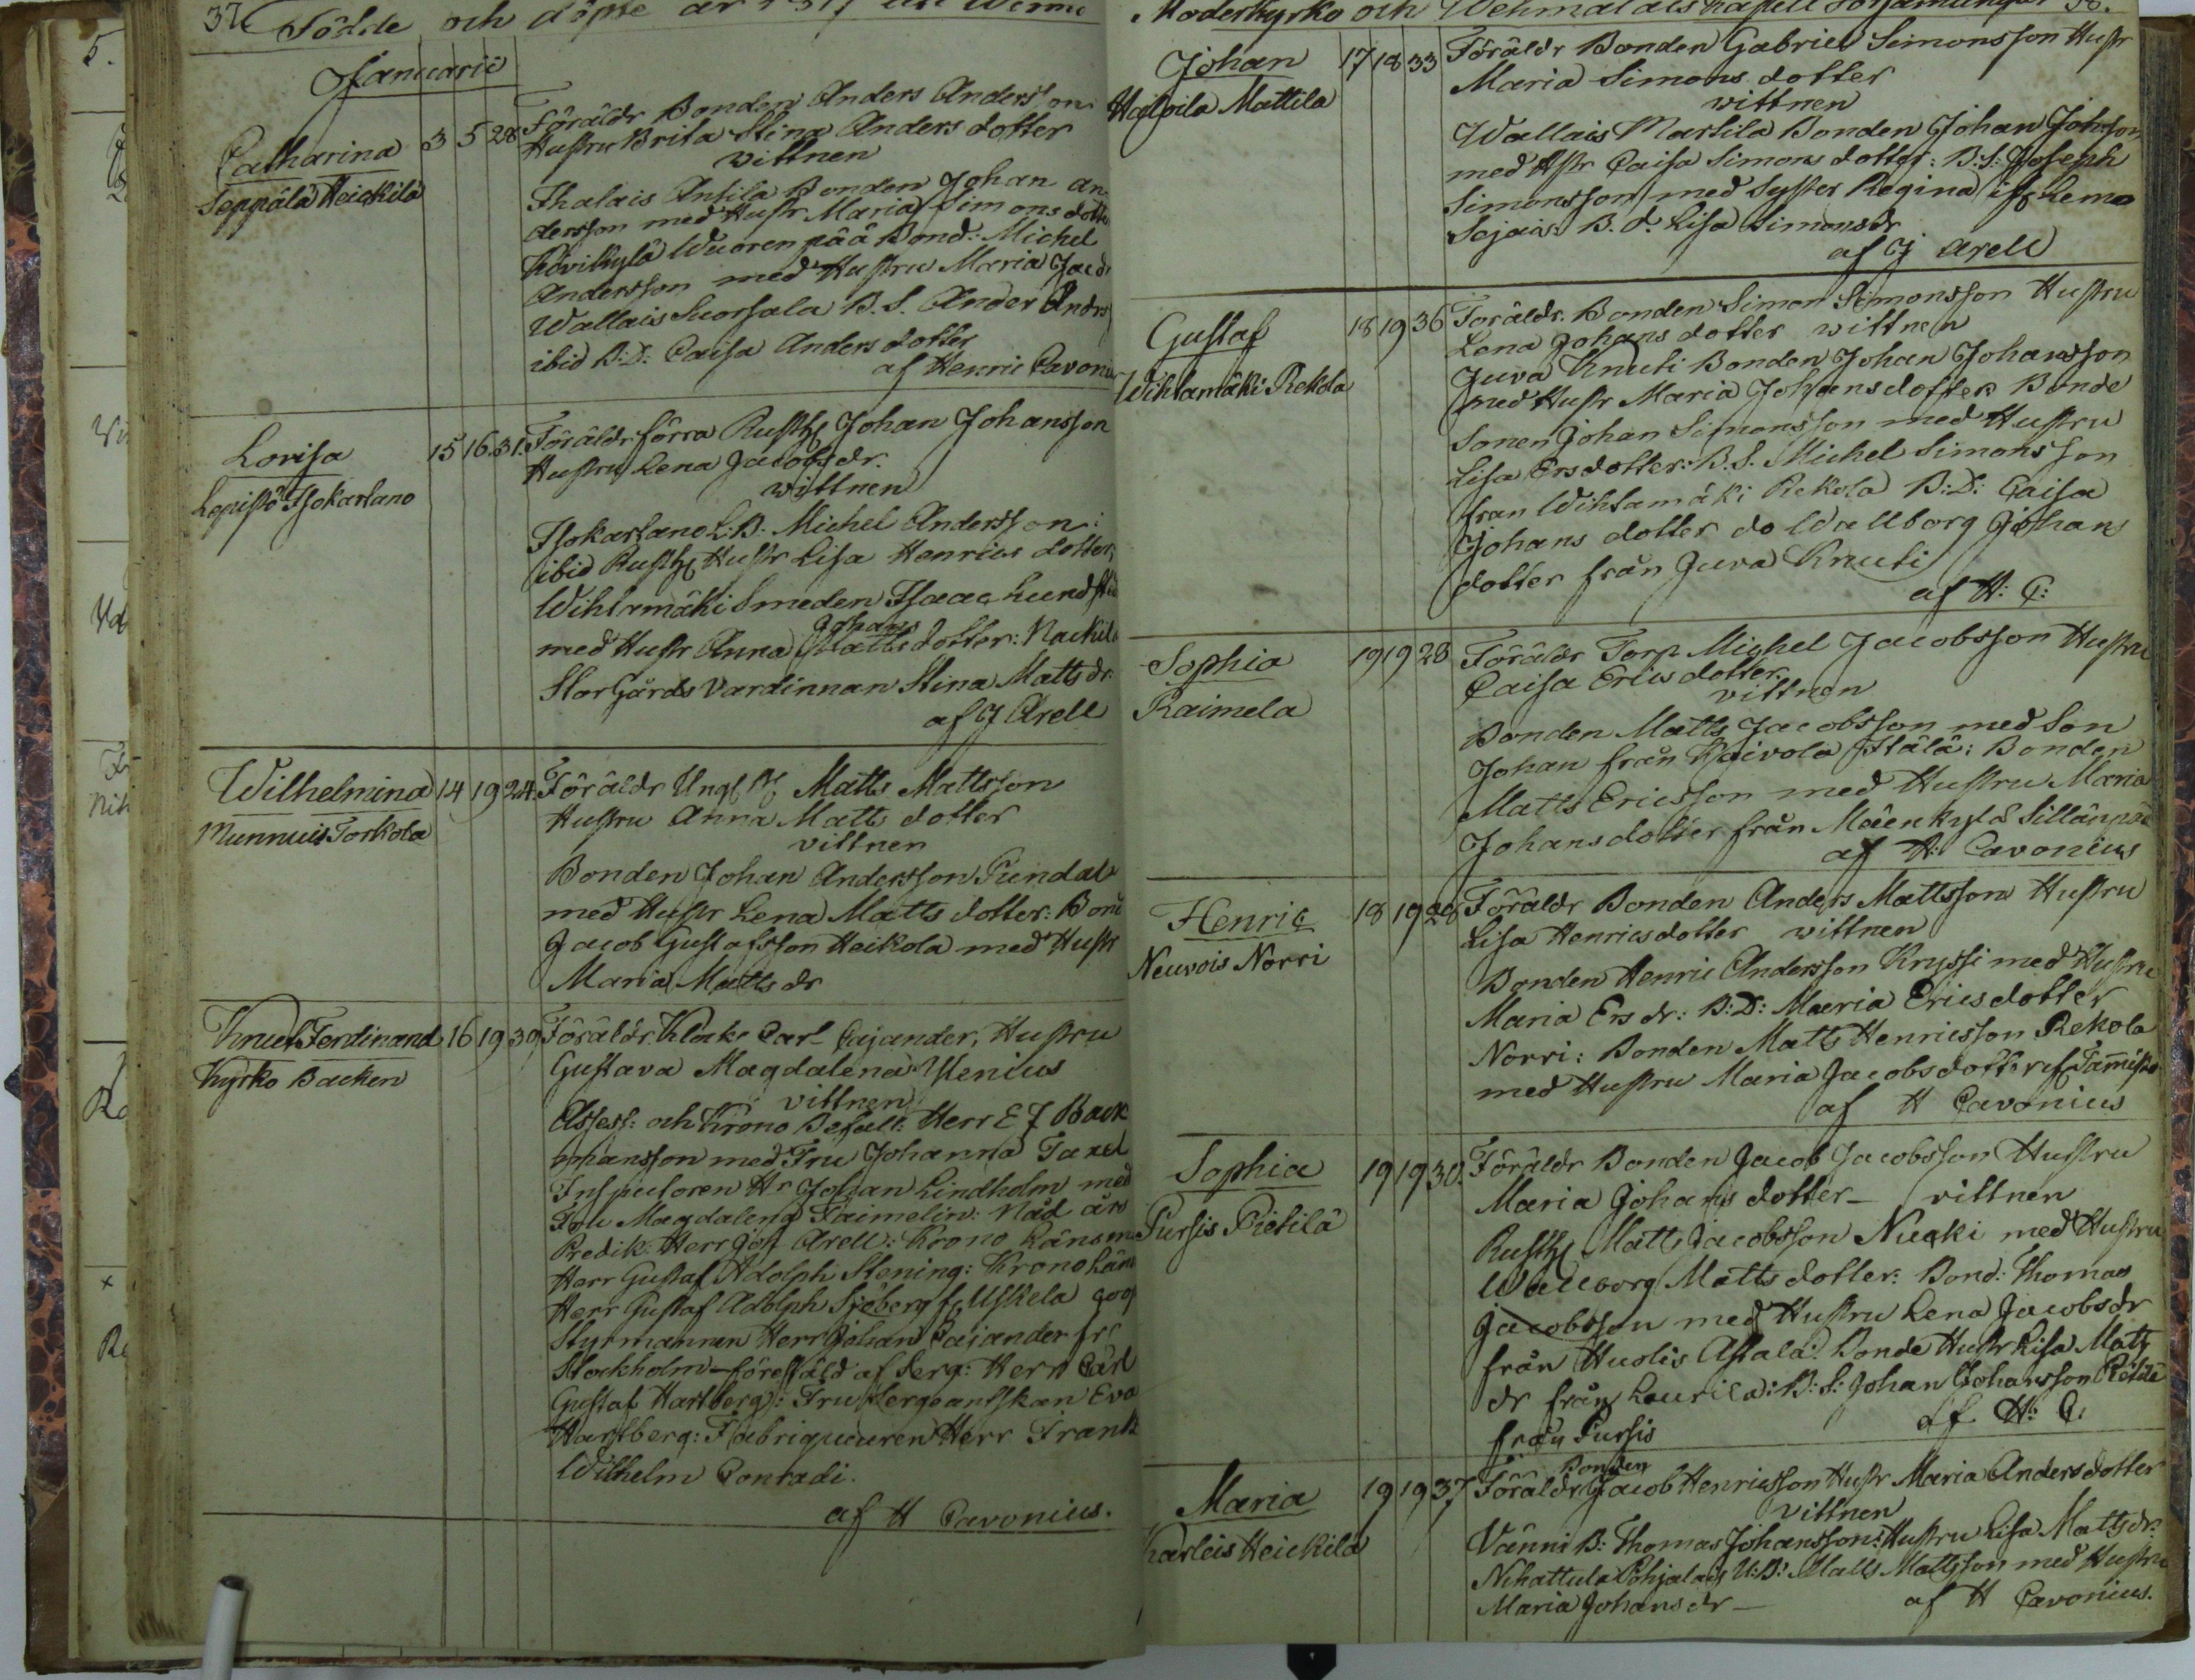 37
Födde och döpte år
Januarii
Catharina 3 5 28 Föräldr Bonden Anders Andersson
Seppälä Heickilä
Hustru Brita Stina Anders dotter
vittnen
Thalais Antila Bonden Johan An
dersson med Hustr Maria Simons dotte
Kovikylä Wuorenpää Bond: Michel
Andersson med Hustru Maria Jac dr
Wallais Suorsala B. S. Ander Anders
ibid B: D: Caisa Anders dotter
af Henric Cavoni
Lovisa 15 16 31. Föräldr förra Rusth Johan Johansson
Lepistö Isokartano
Hustru Lena Jacobs dr.
vittnen
Isokartano L: B. Michel Andersson:
ibid Rusth Hustr Lisa Henrics dotter
Wihtamäki Smeden Isaac Lundst
Johans
med Hustr Anna Matts dotter: Nackila
StorGårds Vardinnan Stina Matts dr.
af J Arell
Wilhelmina 14 19 24. Föräldr Ung Matts Mattsson
Munnuis Torkola
Hustru Anna Matts dotter
vittnen
Bonden Johan Andersson Pundal
med Hustr Lena Matts dotter: Bond
Jacob Gustafsson Heikola med Hustr
Maria Matts dr
Knut Ferdinand 16 19 39 Föräldr. Klock Carl Cajander, Hustru
Kyrko Backen
Gustava Magdalena Ulenius
vittnen
Assess: och Krono Befall: Herr E J Back
mansson med Fru Johanna Taxel
Inspectoren Hr Johan Lindholm med
Fru Magdalena Taimelin: Nåd års
Predik: Herr Joh Arell: Krono Länsm
Herr Gustaf Adolph Stening: Krono Läns
Herr Gustaf Adolph Sjöberg f Uskela
Styrmannen Herr Johan Cajander fr
Stockholm - föreställd af Serg: Herr Carl
Gustaf Hartberg: Fru Sergeantskan Eva
Hartberg: Fabriqueuren Herr Frantz
Wilhelm Conradi.
af H Cavonius.
Moderkyrko och Wehmalais kapell Församlingar
Johan 17 18 33 Föräldr Bonden Gabriel Simonsson Hustr
Halvila Mattila
Maria Simons dotter
wittnen
Wallais Martila Bonden Johan Johsson
med Hstr Caisa Simons dotter: B: S: Joseph
Simonsson med Syster Regina if Lemo
Sajais: B. d. Lisa Simonsdr
af J Arell
Gustaf 18 19 36 Föräldr. Bonden Simon Simonsson Hustru
Wihtamäki Rekola
Lena Johans dotter wittnen
Juva Knuti Bonden Johan Johansson
med Hustr Maria Johansdotter Bonde
Sonen Johan Simonsson med Hustru
Lisa Ersdotter: B. S. Michel Simonsson
fran Wihtamäki Rekola B: D: Caisa
Johans dotter do Wallborg Johans
dotter från Juva Knuti
af H: C:
Sophia 19 19 28 Föräldr Torp Michel Jacobsson Hustru
Raimela
Caisa Erics dotter
vittnen
Bonden Matts Jacobsson med Son
Johan från Kaivola Itälä: Bonden
Matts Ericsson med Hustru Maria
Johans dotter från Mäenkylä Sillänpää
af H: Cavonius
Henric 18 19 28 Föräldr Bonden Anders Mattsson Hustru
Neuvois Norri
Lisa Henricsdotter wittnen
Bonden Henric Andersson Kryssi med Hustru
Maria Ers dr: B: D: Maria Erics dotter
Norri: Bonden Matts Henricsson Rekola
med Hustru Maria Jacobsdotter f Tammisto
af H Cavonius
Sophia 19 19 30. Föräldr Bonden Jacob Jacobsson Hustru
Pursis Pietilä
Maria Johans dotter - vittnen
Rusth Matts Jacobsson Nucki med Hustru
Wallborg Matts dotter: Bond: Thomas
Jacobsson med Hustru Lena Jacobs dr
från Huolis Astala: Bonde Hustr Lisa Matts
dr från Laurila: B: S: Johan Johansson Pietilä
från Pursis af H: C.
Bonden
Maria 19 19 37 Föräldr Jacob Henricsson Hustr Maria Andersdotter
Karleis Heickilä
vittnen
Vänni B: Thomas Johansson: Hustru Lisa Mattsdr:
Nihattula Pohjalais U: B: Matts Mattsson med Hustru
Maria Johans dr - af H Cavonius.